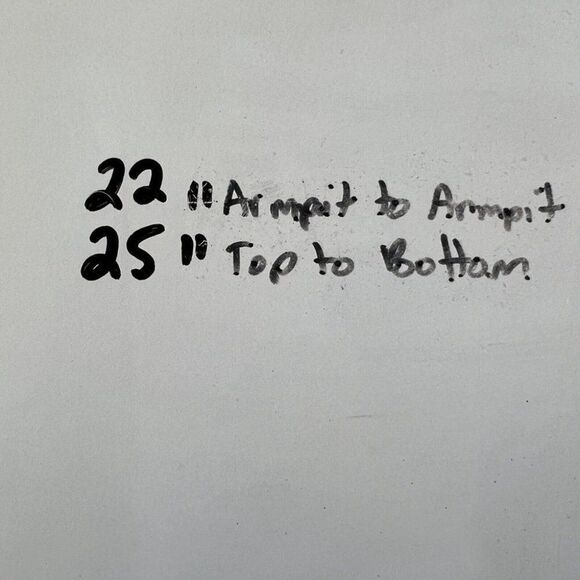 22 " Armpit to Armpit
25 " Top to Bottom